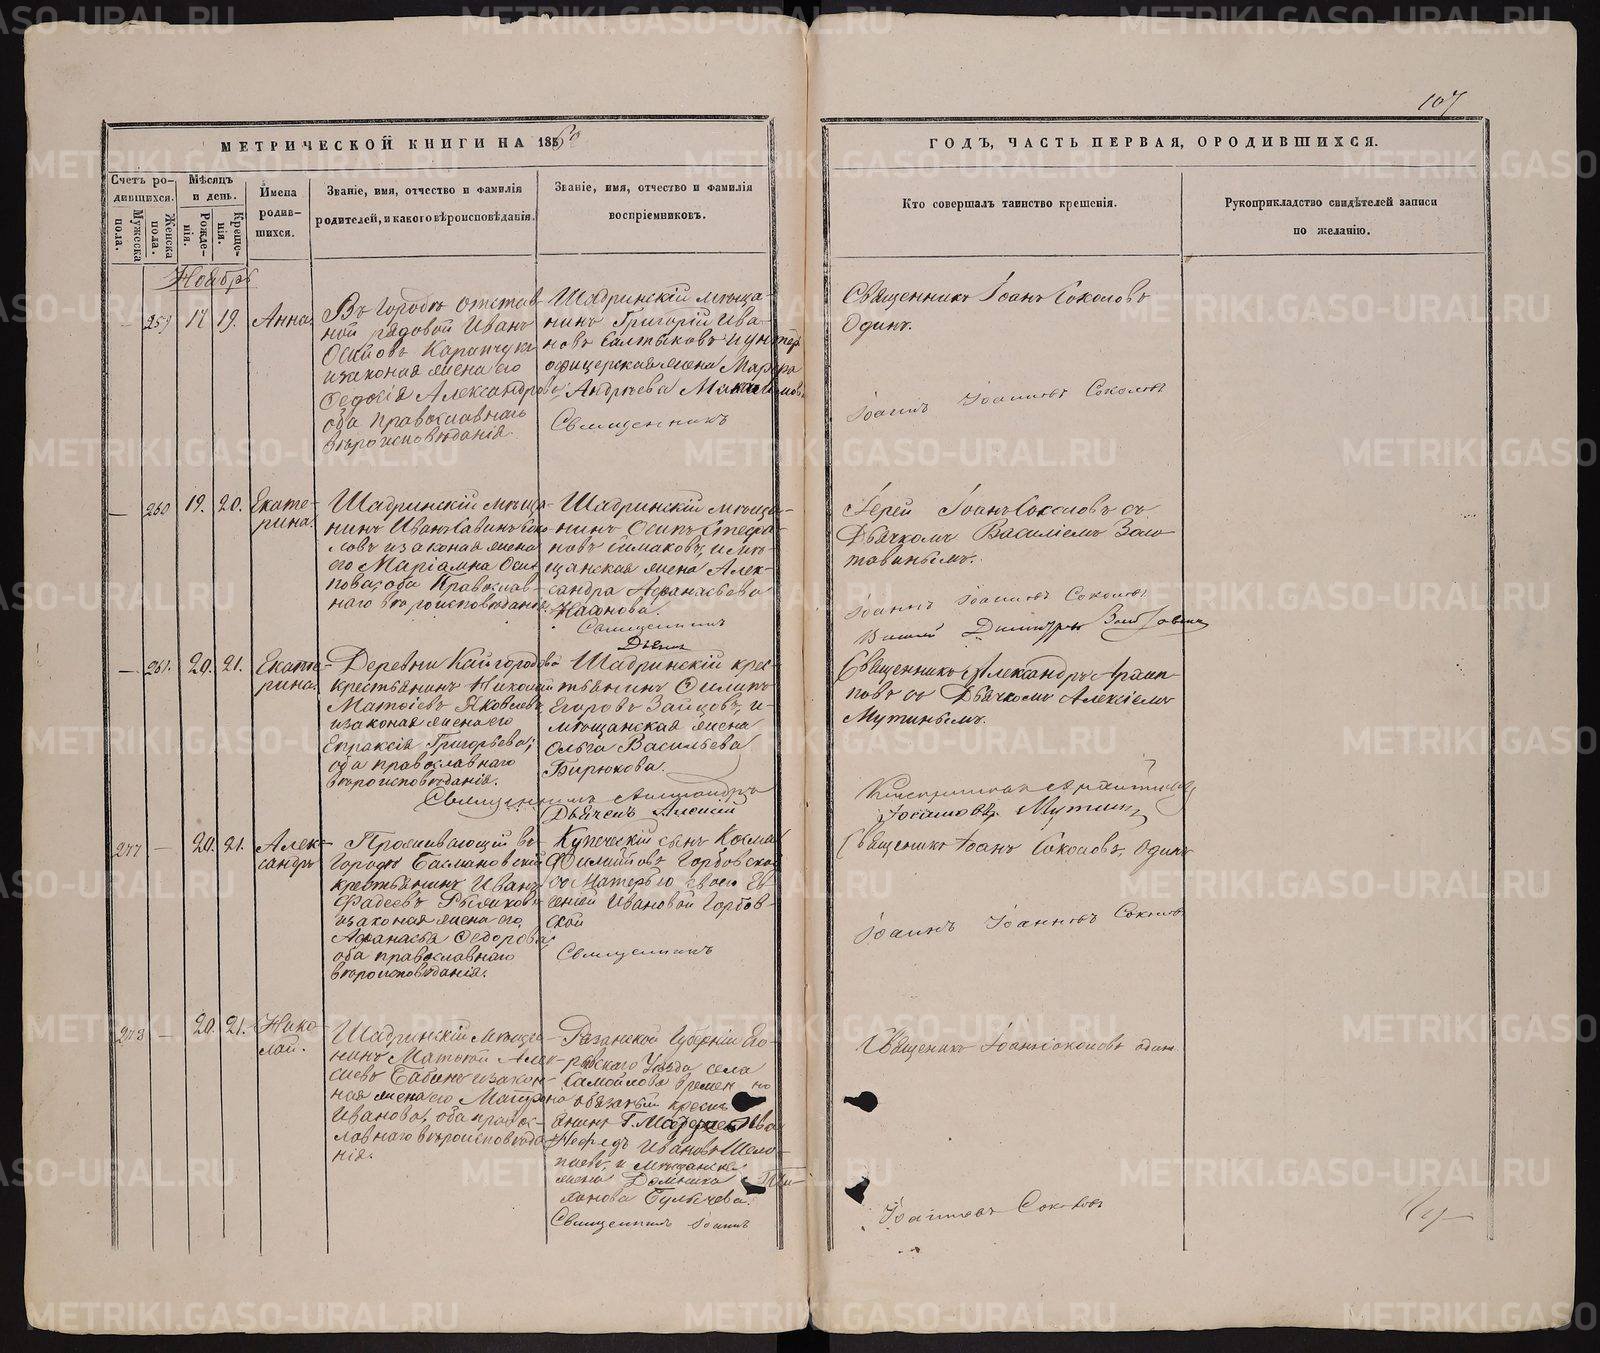 107
МЕТРИЧЕСКОЙ КНИГИ НА 1860
ГОДЪ, ЧАСТЬ ПЕРВАЯ, О РОДИВШИХСЯ.
Счетъ ро-
дившихся.
Мужеска
пола.
Женска
пола.
Мѣсяцъ
и день.
Рожде-
нія.
Креще-
нія.
Имена
родив-
шихся.
Званіе, имя, отчество и фамилія
родителей, и какого вѣроисповѣданія.
Званіе, имя, отчество и фамилія
воспріемниковъ.
Кто совершалъ таинство крещенія.
Рукоприкладство свидѣтелей записи
по желанію.
Ноябрь
— 259 17 19. Анна.
Въ Городѣ отстав
ной рядовой Иванъ
Осиповъ
и законая жена его
Федосія Александрова,
оба православнаго
вѣроисповѣданія.
Шадринскій мѣща-
нинъ Григорій Ива-
новъ Салтыковъ и унтер
офицерская жена Марфа
Андрѣева
Священникъ
Священникъ Іоанъ Соколовъ
Одинъ.
Іоаннъ Іоанновъ Соколовъ
— 260 19. 20. Екате-
рина.
Шадринскій мѣща-
нинъ Иванъ Савинъ Соко
ловъ и законая жена
его Маріамна Оси
пова, оба Православ-
наго вѣроисповѣданія.
Шадринскій мѣща-
нинъ Осипъ Стефа-
новъ и мѣ-
щанская жена Алек-
сандра Афанасьева
Священникъ
Іерей Іоанъ Соколовъ съ
Дьячкомъ Василіемъ
Іоаннъ Іоанновъ Соколовъ
— 261. 20. 21. Екате-
рина.
Деревни Кайгородова
крестьянинъ Николай
Матѳіевъ Яковлевъ
и законая жена его
Епраксія Григорьева;
оба православнаго
вѣроисповѣданія.
Шадринскій крес-
тьянинъ Филипъ
Егоровъ Зайцовъ, и
мѣщанская жена
Ольга Васильева
Бирюкова.
Священникъ Александръ
Дьячекъ Алексій
Священникъ Александръ
съ Дьячкомъ Алексіемъ
Мутинымъ.
Мутинъ
277 — 20. 21. Алек-
сандръ
Проживающій въ
Городѣ Басмановскій
крестьянинъ Иванъ
Фадеевъ
и законая жена его
Афанасья Федорова,
оба православнаго
вѣроисповѣданія.
Купеческій сынъ Козма
Филиповъ Горбовской
съ Матерью своею Ев-
геніей Ивановой Горбов-
ской
Священникъ
Священникъ Іоанъ Соколовъ, Одинъ
Іоаннъ Іоанновъ Соколовъ
278 — 20. 21. Нико-
лай.
Шадринскій мѣща-
нинъ Матвѣй Алек-
сіевъ Бабинъ и закон-
ная жена его Матрона
Иванова, оба правос-
лавнаго вѣроисповѣда
нія.
Разанской Губерніи Его-
рьвскаго Уѣзда села
Самойлова времен но
обязаный кресть
янинъ
Иванов
и Мѣщанск.
жена Домника Ти-
ханова
Священникъ Іоаннъ
Священикъ Іоаннъ Соколовъ один.
Іоанновъ Соколовъ